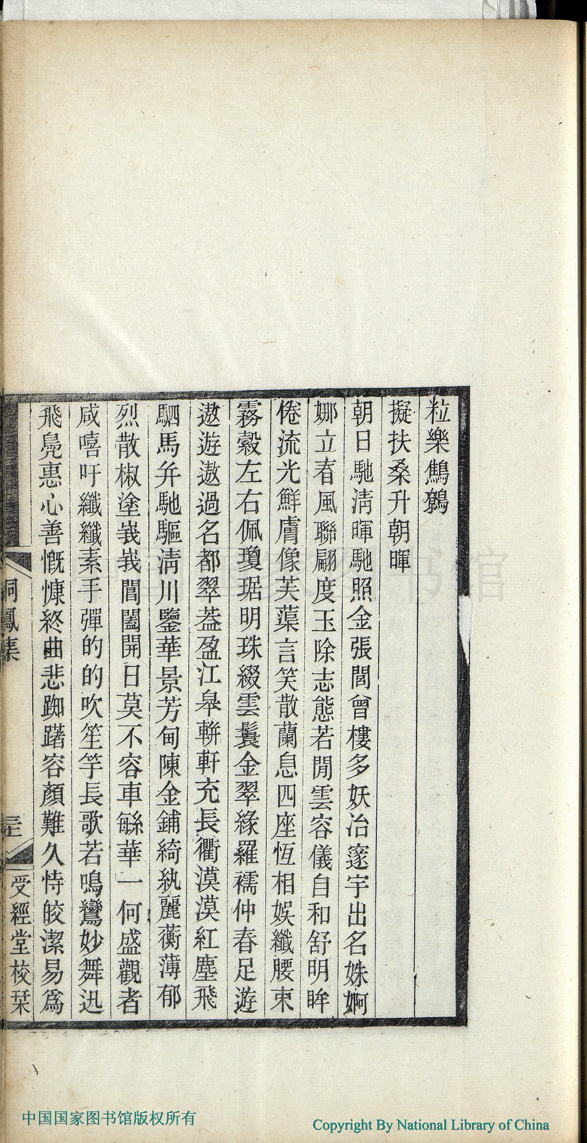 粒樂鷦鷯
擬扶桑升朝暉
朝日馳淸暉馳照金張閭曾樓多妖冶邃宇出名姝婀
娜立春風聯翩度玉除志態若閒雲容儀自和舒明眸
倦流光鮮膚像芙蕖言笑散蘭息四座恆相娛纖腰束
霧縠左右佩瓊琚明珠綴雲鬟金翠緣羅襦仲春足遊
遨遊遨過名都翠葢盈江皋輧軒充長衢漠漠紅塵飛
駟馬并馳驅淸川鑒華景芳甸陳金鋪綺紈麗蘅薄郁
烈散椒塗峩峩閶闔開日莫不容車緐華一何盛觀者
咸嘻吁纖纖素手彈的的吹笙竽長歌若鳴鸞妙舞迅
飛鳧惠心善慨慷終曲悲踟躇容顏難久恃皎潔易爲
桐鳳集
受經堂校栞
中国国家图书馆版权所有
Copyright By National Library of China